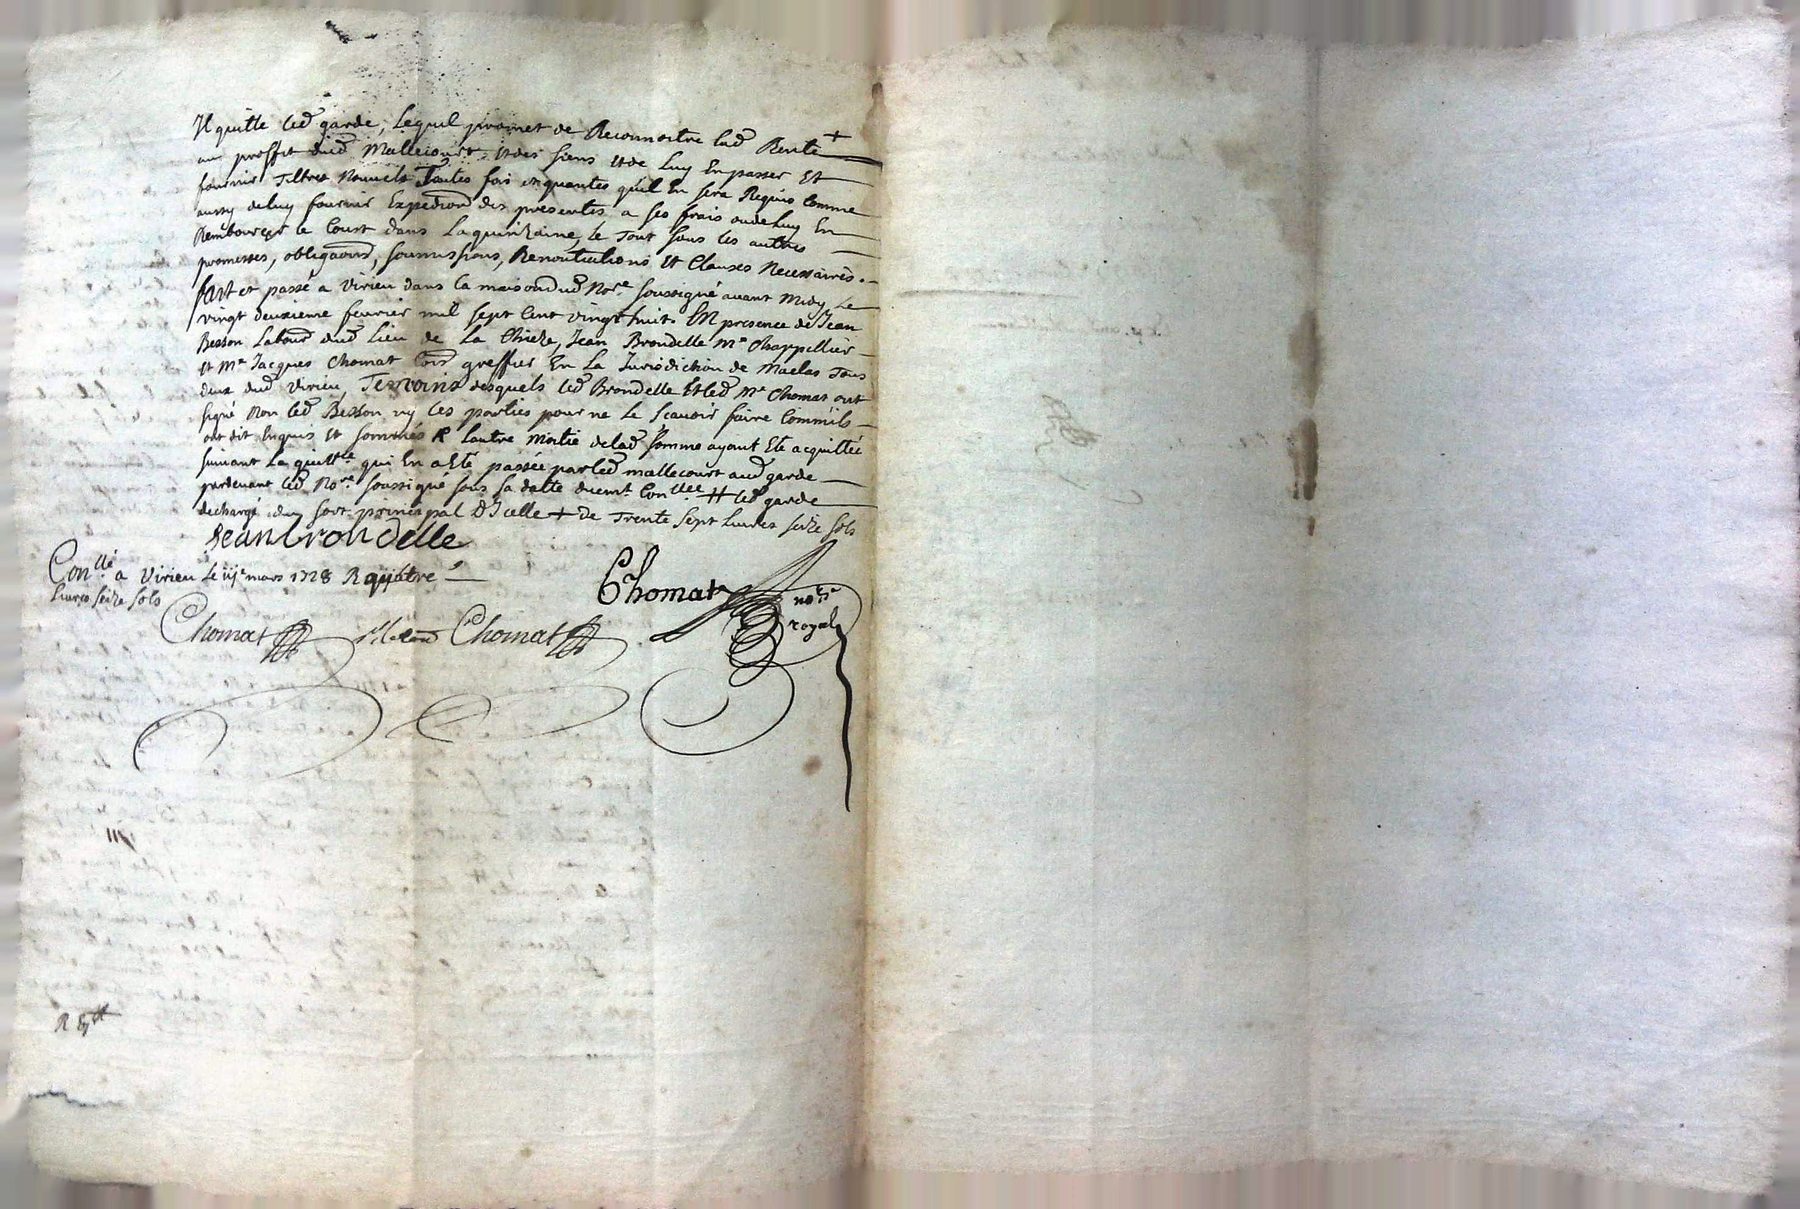 Il quitte led garde, Lequil promet de Reconnoitre lad Rente +
au proffit dud Mallecourt et des siens et de Luy En passer Et
fournir Tiltres Nouvels Toutes fois et quantes quil En sera Requis Comme
aussy deluy fournir Expedion des presentes a ses frais oude Luy En
Rembourcer le Cout dans La quinzaine, le Tout sous les autres
promesses, obligaons, soumissions, Renontiations Et Clauses Necessaires.
fait et passé a Virieu dans la maison dud Nore soussigné avant midy Le
vingt deuxieme fevrier mil sept Cent vingt huit En presence de Jean
Besson Labour dud Lieu de La Chieze, Jean Brondelle Me Chappellier
et Me Jacques Chomat Com greffier En La Jurisdiction de Maclas Tous
deux dud Virieu Temoins desquels led Brondelle Et led Me Chomat ont
signé Non led Besson ny les parties pour ne le scavoir faire Commils
ont dit Enquis et sommés R Lautre Moitie delad somme ayant Eté acquittée
suivant La quittce qui En a Eté passée par led mallecourt aud garde
pardevant led Nore soussigné sous sa datte duemt Conllee # led garde
dechargé du sort principal D'Icelle + de Trente sept Livres seize sols
Jean brondelle
Conllé a Virieu Le iije mars 1728 R quatre
Livres seize sols
Chomat Chomat
Chomat nore
royal